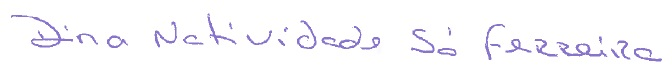 Dina Natividade Só Ferreira